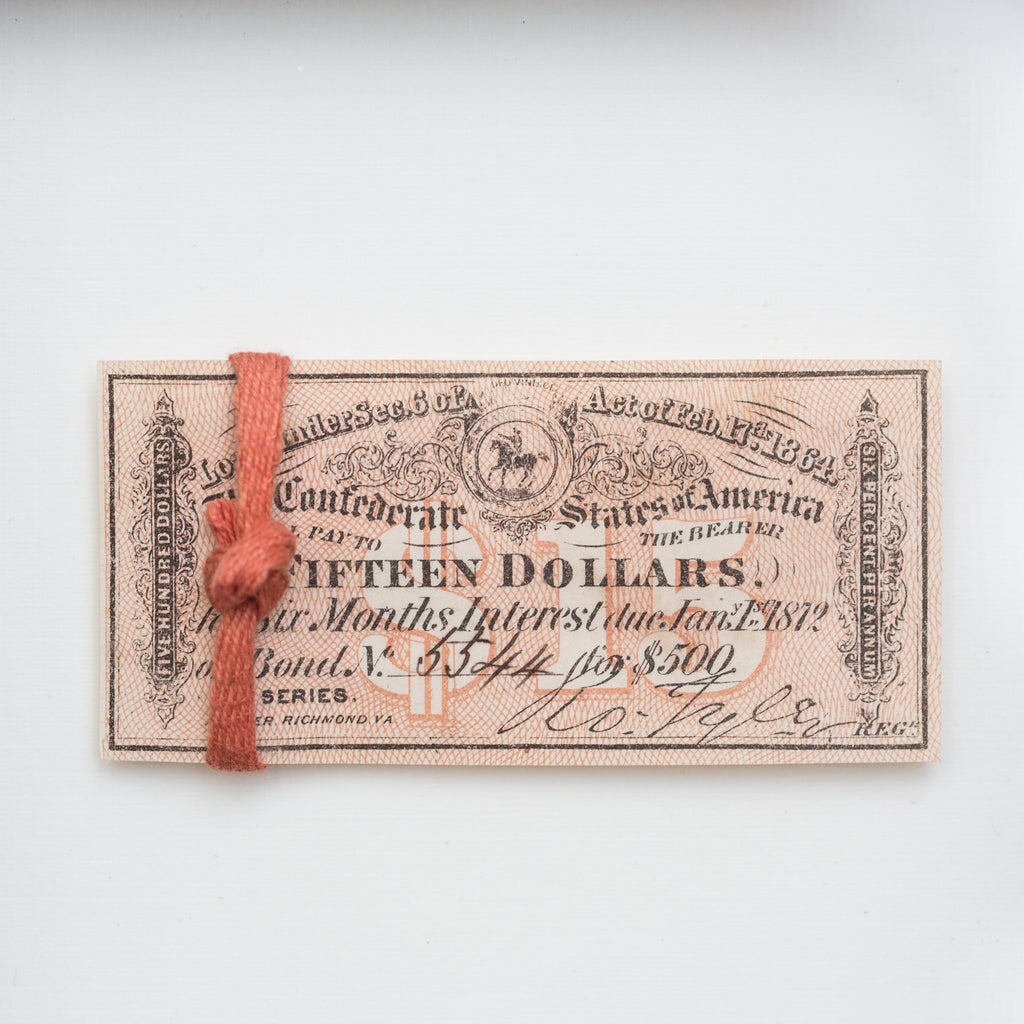 GEO WASH
Under Sec. 6 of Act of Feb. 17th 1864.
Confederate States of America
PAY TO THE BEARER
FIFTEEN DOLLARS.
$15
Six Months Interest due Jany. 1st 1872
Bond No. 5544 for $500
SERIES.
RICHMOND, VA
Ro. Tyler REGr.
FIVE HUNDRED DOLLARS
SIX PERCENT. PER ANNUM